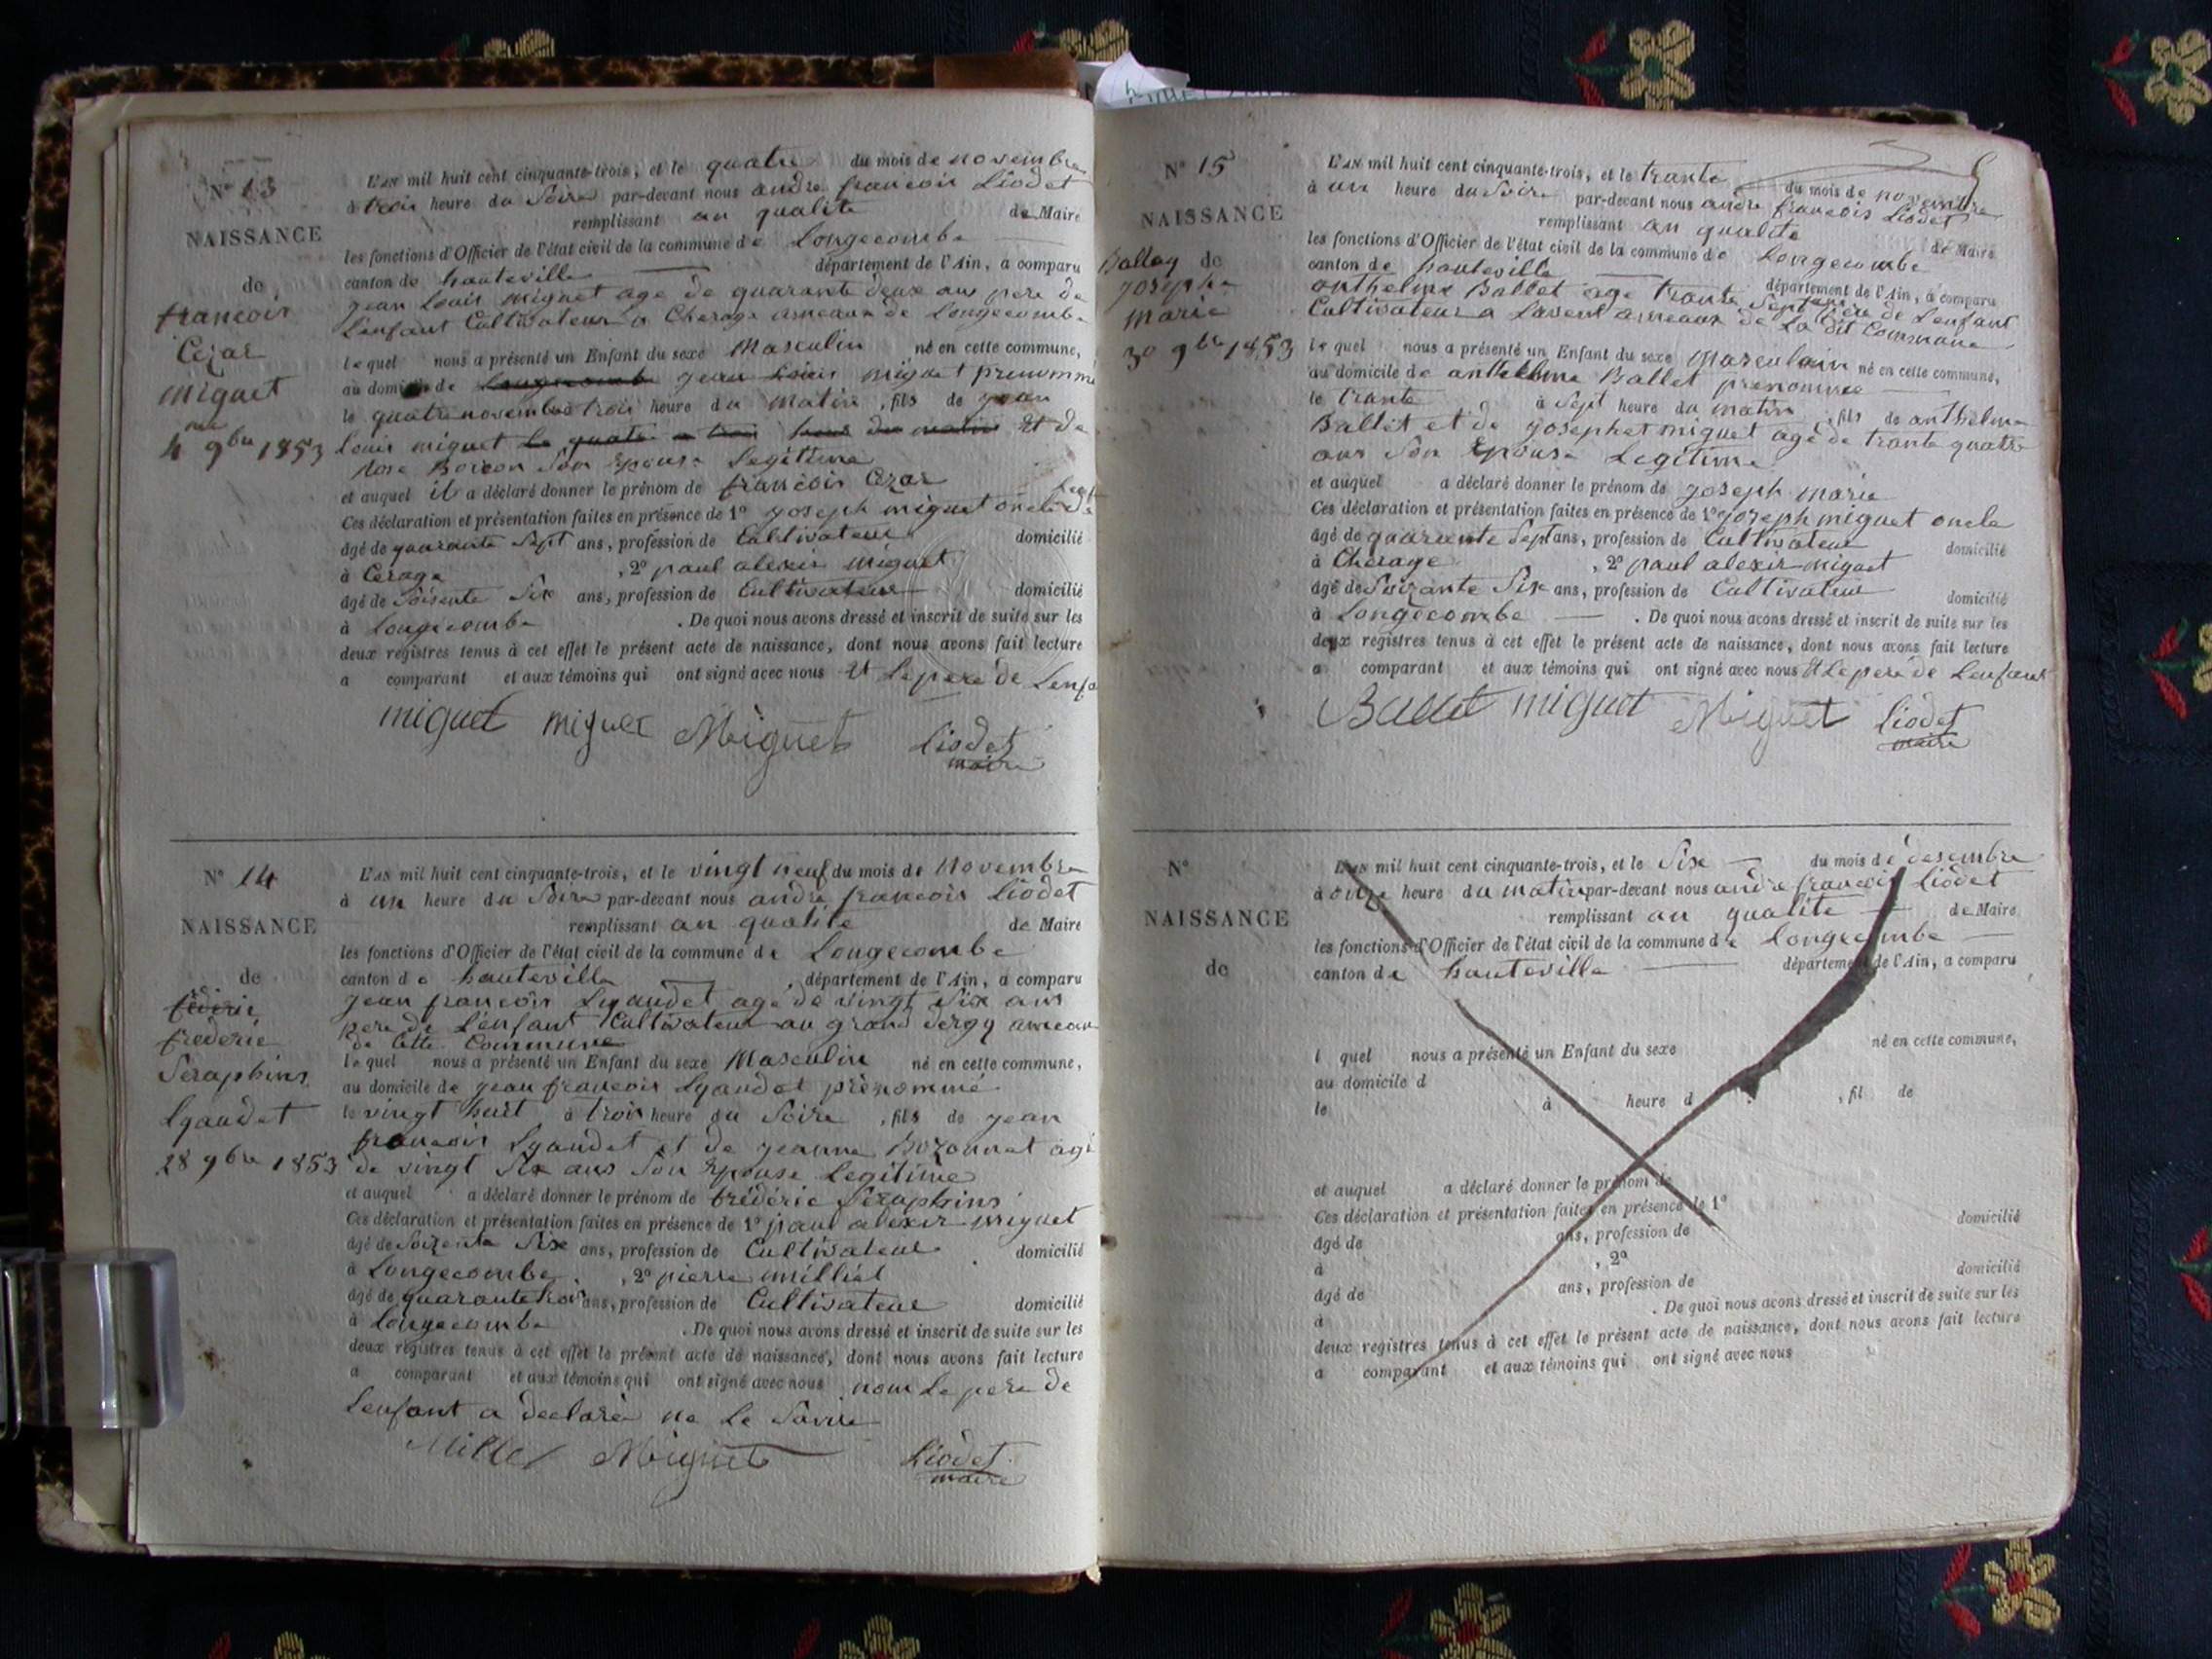 N° 13
NAISSANCE
de
francois
Cezar
miguet
4 9bre 1853
L'AN mil huit cent cinquante-trois, et le quatre du mois de novembre
à trois heure du Soire par-devant nous andre francois Liodet
remplissant an qualite de Maire
les fonctions d'Officier de l'état civil de la commune de Longecombe
canton de hauteville département de l'Ain, a comparu
jean Louis miguet age de quarante deux ans pere de
Lenfant Cultivateur a Cherage ameaux de Longecombe
lequel nous a présenté un Enfant du sexe Masculin né en cette commune,
au domicile de Longecombe jean Louis miguet prenommé
le quatre novembre trois heure du matin, fils de jean
Louis miguet le quatre a trois heure du matin Et de
rose Boison Son Epouse Legitime
et auquel il a déclaré donner le prénom de francois Cezar
Ces déclaration et présentation faites en présence de 1° joseph miguet oncle
âgé de quarante Sept ans, profession de Cultivateur domicilié
à Cerage, 2° paul alexis miguet
âgé de Soisente Six ans, profession de Cultivateur domicilié
à Longecombe. De quoi nous avons dressé et inscrit de suite sur les
deux registres tenus à cet effet le présent acte de naissance, dont nous avons fait lecture
a comparant et aux témoins qui ont signé avec nous Et Le pere de Lenfa
miguet miguet Miguet Liodet
maire
N° 14
NAISSANCE
de
fréderic
Séraphins
Lyaudet
28 9bre 1853
L'AN mil huit cent cinquante-trois, et le vingt neuf du mois de Novembre
à un heure du Soire par-devant nous andre francois Liodet
remplissant an qualite de Maire
les fonctions d'Officier de l'état civil de la commune de Longecombe
canton de hauteville, département de l'Ain, a comparu
jean francois Lyaudet age de vingt Six ans
pere de Lenfant Cultivateur au grand dergy ameau
de Cette Commune
lequel nous a présenté un Enfant du sexe Masculin né en cette commune,
au domicile de jean francois Lyaudet prénommé
le vingt huit à trois heure du Soire, fils de jean
francois Lyaudet et de jeanne Bozonnet agé
de vingt Six ans Son Epouse Legitime
et auquel a déclaré donner le prénom de frédéric Séraphins
Ces déclaration et présentation faites en présence de 1° paul alexis miguet
âgé de Soizente Six ans, profession de Cultivateur domicilié
à Longecombe, 2° pierre milliet
âgé de quarante trois ans, profession de Cultivateur domicilié
à Longecombe. De quoi nous avons dressé et inscrit de suite sur les
deux registres tenus à cet effet le présent acte de naissance, dont nous avons fait lecture
a comparant et aux témoins qui ont signé avec nous nom Le pere de
Lenfant a declaré ne Le Savoir
Millet Miguet Liodet
maire
N° 15
NAISSANCE
Ballay de
joseph
marie
30 9bre 1853
L'AN mil huit cent cinquante-trois, et le trante du mois de novembre
à un heure du Soire par-devant nous andre francois Liodet
remplissant an qualite de Maire
les fonctions d'Officier de l'état civil de la commune de Longecombe
canton de hauteville département de l'Ain, a comparu
anthelme Ballet age trante Sept pere de Lenfant
Cultivateur a Lavent ameaux de La dit Commune
lequel nous a présenté un Enfant du sexe Masculain né en cette commune,
au domicile de anthelme Ballet prenommée
le trante à Sept heure du matin, fils de anthelme
Ballet et de josephet miguet agé de trante quatre
ans Son Epouse Legitime
et auquel a déclaré donner le prénom de joseph marie
Ces déclaration et présentation faites en présence de 1° joseph miguet oncle
âgé de quarante Sept ans, profession de Cultivateur domicilié
à Cherage, 2° paul alexis miguet
âgé de Soizante Six ans, profession de Cultivateur domicilié
à Longecombe. De quoi nous avons dressé et inscrit de suite sur les
deux registres tenus à cet effet le présent acte de naissance, dont nous avons fait lecture
a comparant et aux témoins qui ont signé avec nous Et Le pere de Lenfant
Ballet miguet Miguet Liodet
maire
N°
NAISSANCE
de
L'AN mil huit cent cinquante-trois, et le Six du mois de desembre
à onze heure du matin par-devant nous andre francois Liodet
remplissant an qualite de Maire
les fonctions d'Officier de l'état civil de la commune de Longecombe
canton de hauteville département de l'Ain, a comparu
l quel nous a présenté un Enfant du sexe né en cette commune,
au domicile d
le à heure d, fil de
et auquel a déclaré donner le prénom de
Ces déclaration et présentation faites en présence de 1°
âgé de ans, profession de domicilié
à, 2°
âgé de ans, profession de domicilié
à. De quoi nous avons dressé et inscrit de suite sur les
deux registres tenus à cet effet le présent acte de naissance, dont nous avons fait lecture
a comparant et aux témoins qui ont signé avec nous